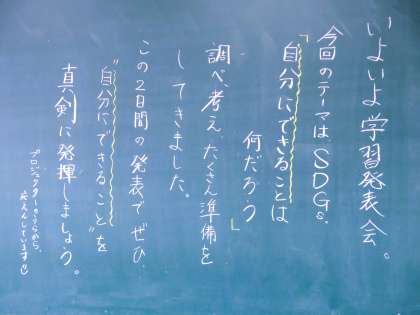 いよいよ学習発表会。
今回のテーマはSDGs.
「自分にできることは
何だろう」
調べ、考え、たくさん準備を
してきました。
この2日間の発表でぜひ
"自分にできること"を
真剣に発揮しましょう。
プロジェクターのうらから、
応えんしています